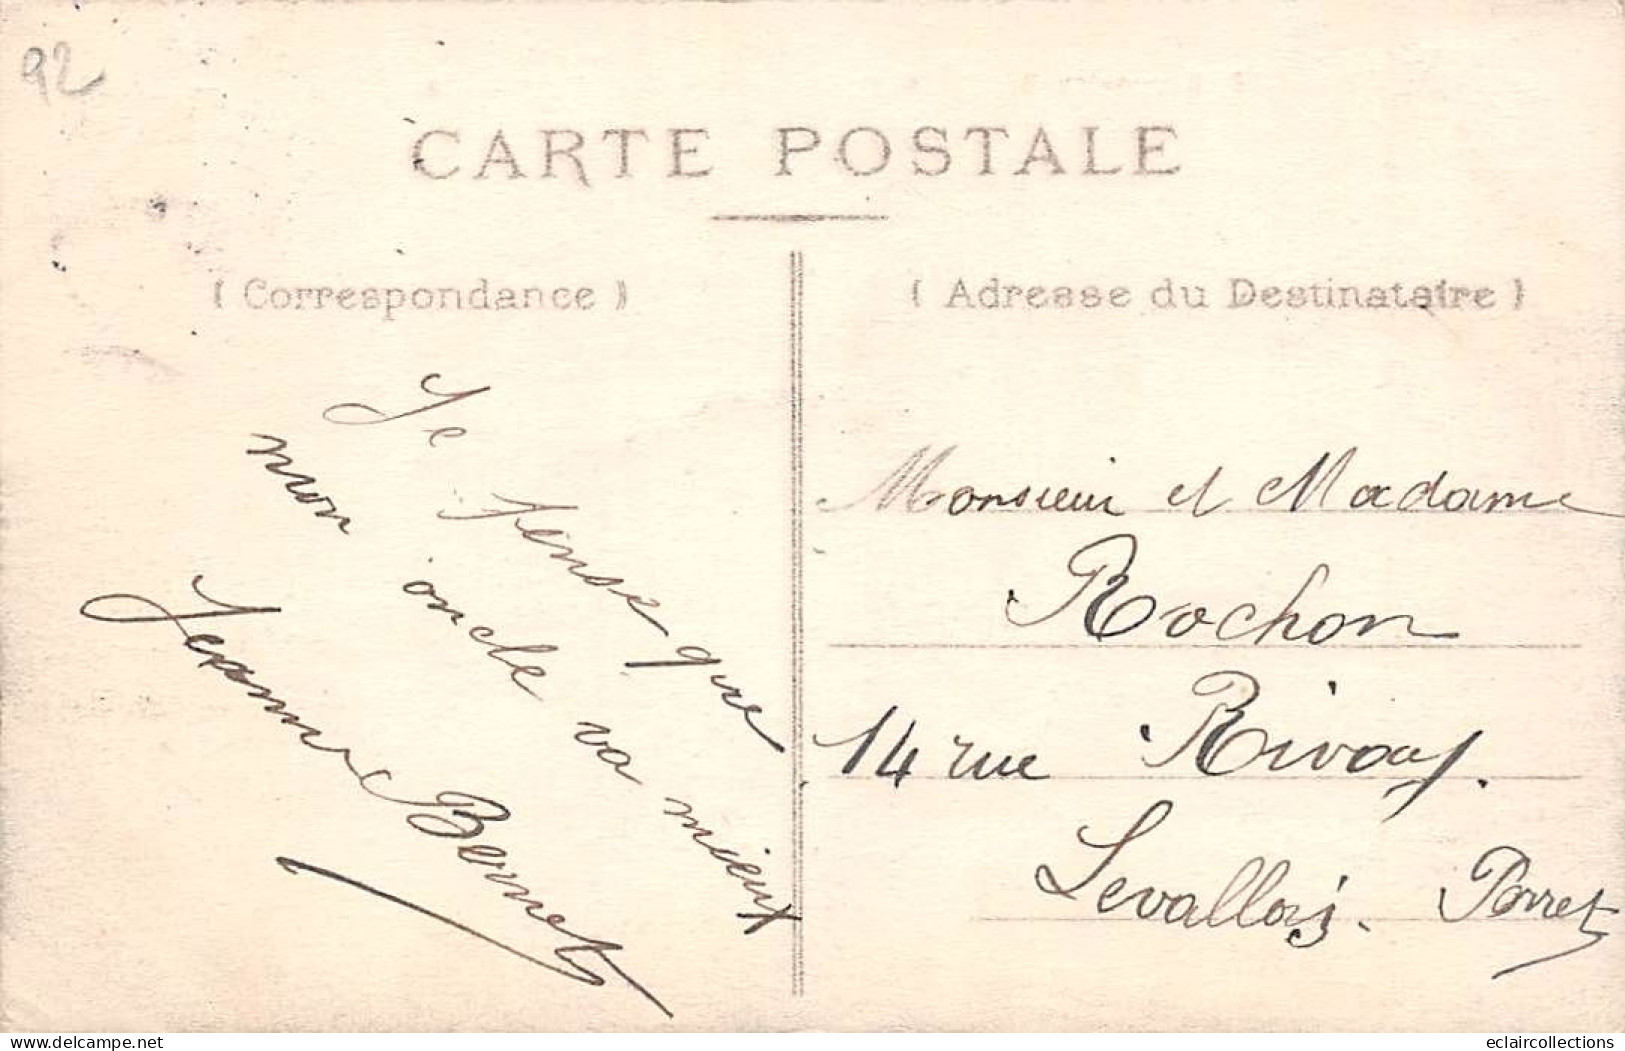 92
CARTE POSTALE
( Correspondance )
( Adresse du Destinataire )
Je pense que
mon oncle va mieux
Jeanne Bernet
Monsieur et Madame
Rochon
14 rue Rivay.
Levallois. Perret
www.delcampe.net
eclaircollections